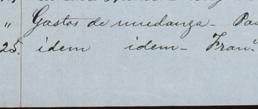 " Gastos de mudanza - Pa
25. idem idem - Fran